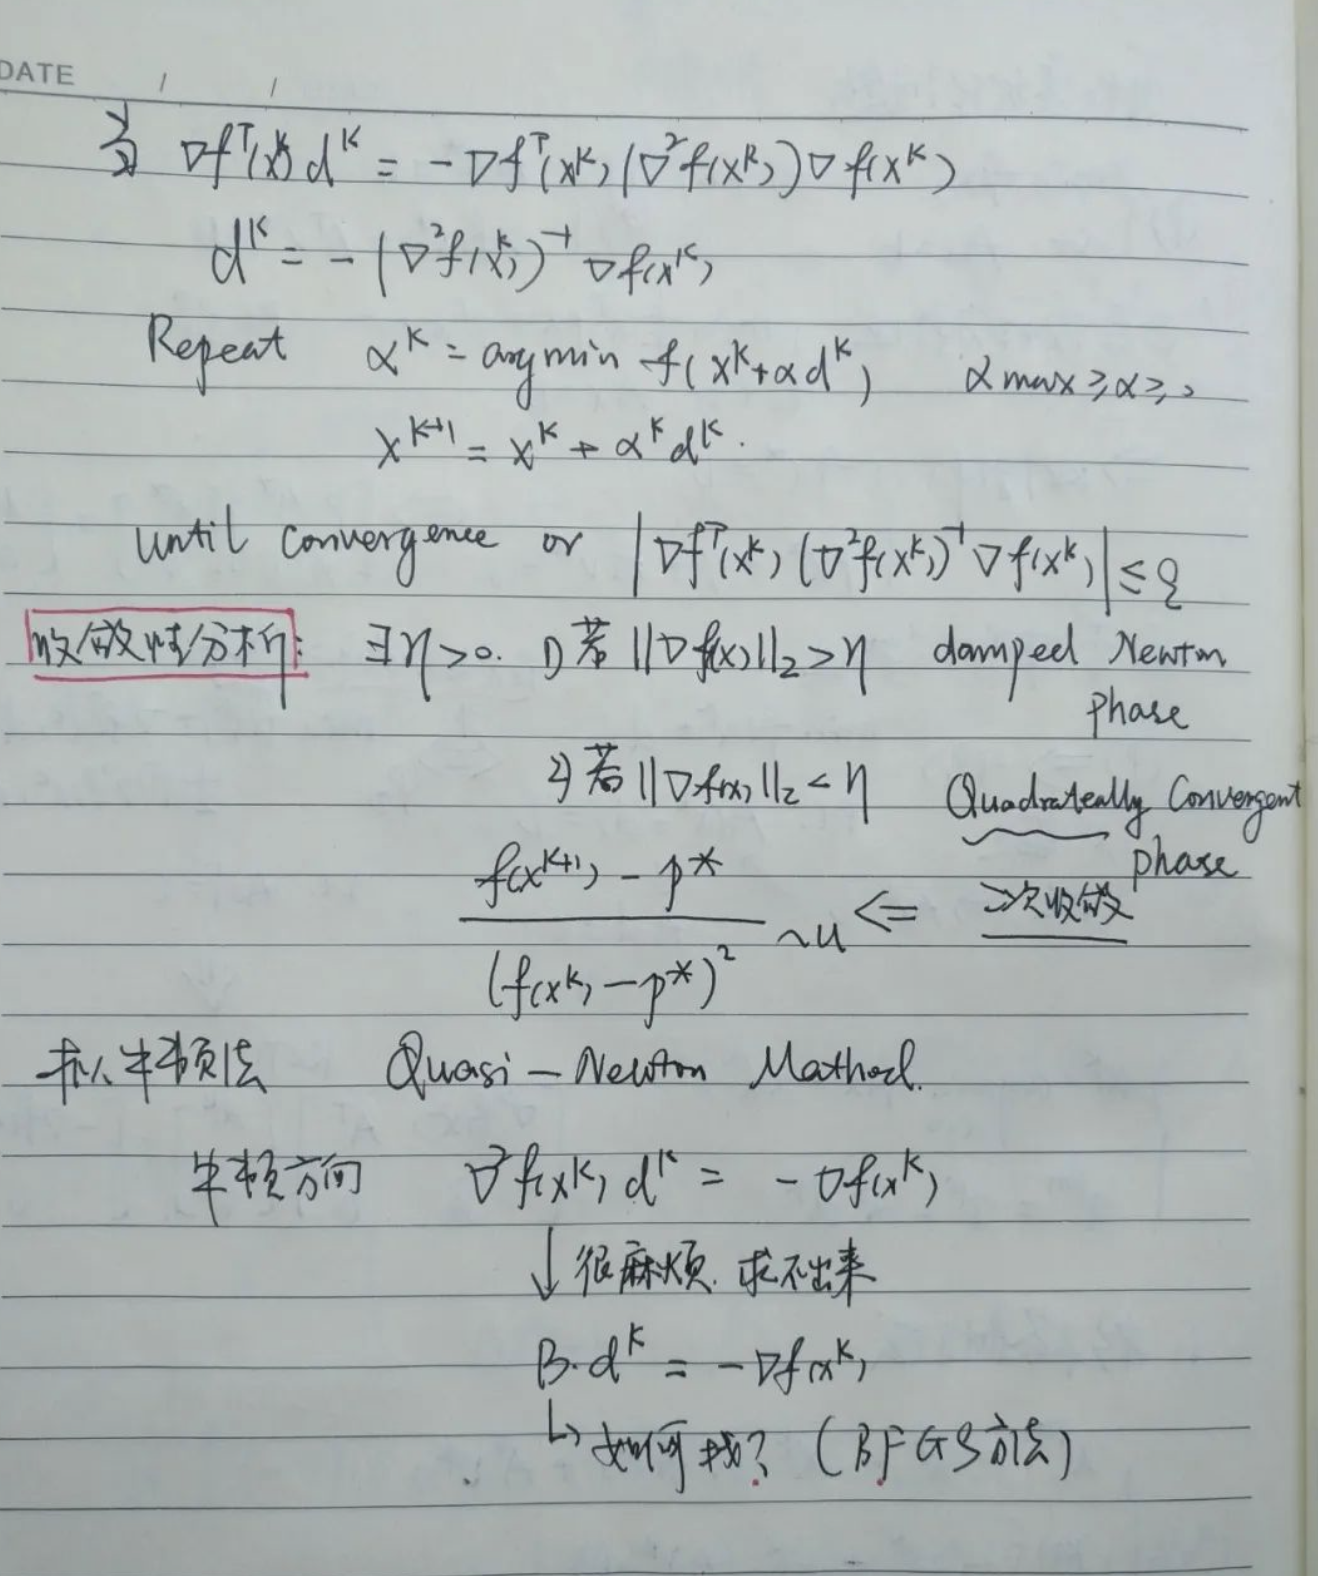 DATE / /
为 ∇fᵀ(xᴷ) dᴷ = -∇fᵀ(xᴷ) (∇²f(xᴷ)) ∇f(xᴷ)
dᴷ = -(∇²f(xᴷ))⁻¹ ∇f(xᴷ)
Repeat αᴷ = argmin f(xᴷ+αdᴷ) αmax ≥ α ≥ 0
xᴷ⁺¹ = xᴷ + αᴷdᴷ.
until convergence or |∇fᵀ(xᴷ) (∇²f(xᴷ))⁻¹ ∇f(xᴷ)| ≤ ξ
收敛性分析: ∃η>0. 1) 若 ||∇f(x)||₂ > η damped Newton
phase
2) 若 ||∇f(x)||₂ < η Quadratcally Convergent
phase
f(xᴷ⁺¹) - p*
~u <= 二次收敛
(f(xᴷ) - p*)²
拟牛顿法 Quasi-Newton Mathod.
牛顿方向 ∇²f(xᴷ) dᴷ = -∇f(xᴷ)
↓ 很麻烦. 求不出来
B·dᴷ = -∇f(xᴷ)
↳ 如何找? (BFGS方法)